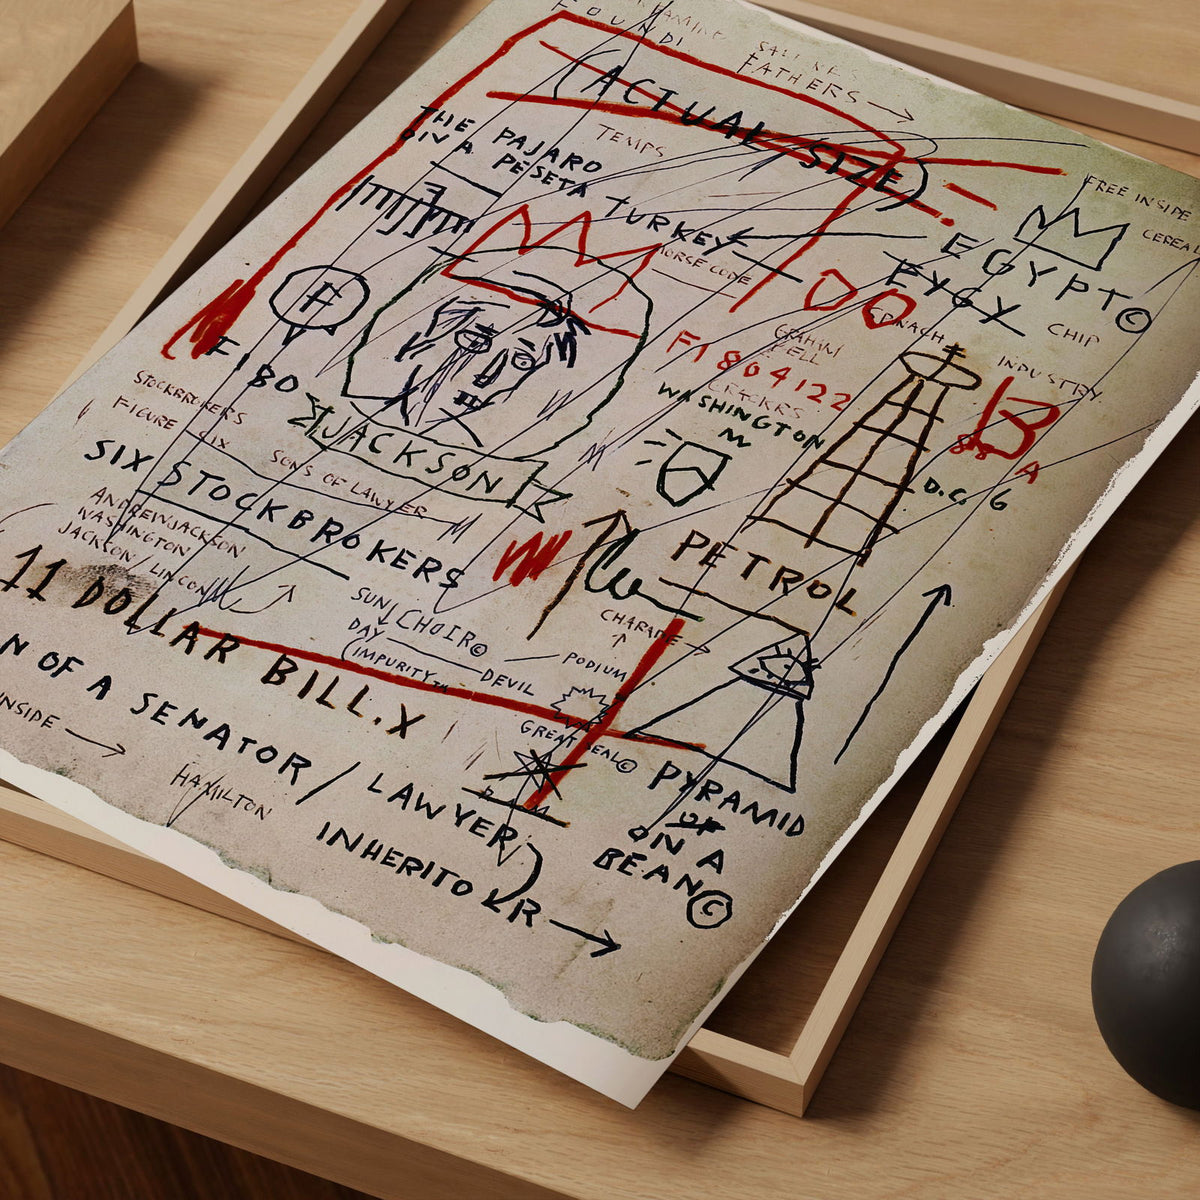 FOUNDI
FATHERS
(ACTUAL SIZE)
THE PAJARO
ON A PESETA
TEMPS
TURKEY
MORSE CODE
FREE INSIDE
CEREAL
EGYPT©
EYGY
CHIP
SPINACH
INDUSTRY
F1804122
WASHINGTON
D.C. 6
B
A
F
FIBO
JACKSON
STOCKBROKERS
FIGURE SIX
SONS OF LAWYER
SIX STOCKBROKERS
ANDREWJACKSON
WASHINGTON
JACKSON/LINCON
11 DOLLAR BILL.X
SUN/CHOIR©
DAY
(IMPURITY™
DEVIL
PODIUM
CHARADE
PETROL
N OF A SENATOR/LAWYER
INSIDE
HAMILTON
GREAT SEAL©
PYRAMID
OF
ON A
BEAN©
INHERITOR